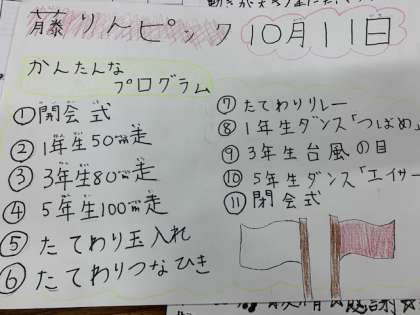 藤りんピック 10月11日
かんたんな
プログラム
①開会式
②1年生50m走
③3年生80m走
④5年生100m走
⑤たてわり玉入れ
⑥たてわりつなひき
⑦たてわりリレー
⑧1年生ダンス「つばめ」
⑨3年生台風の目
⑩5年生ダンス「エイサー
⑪閉会式